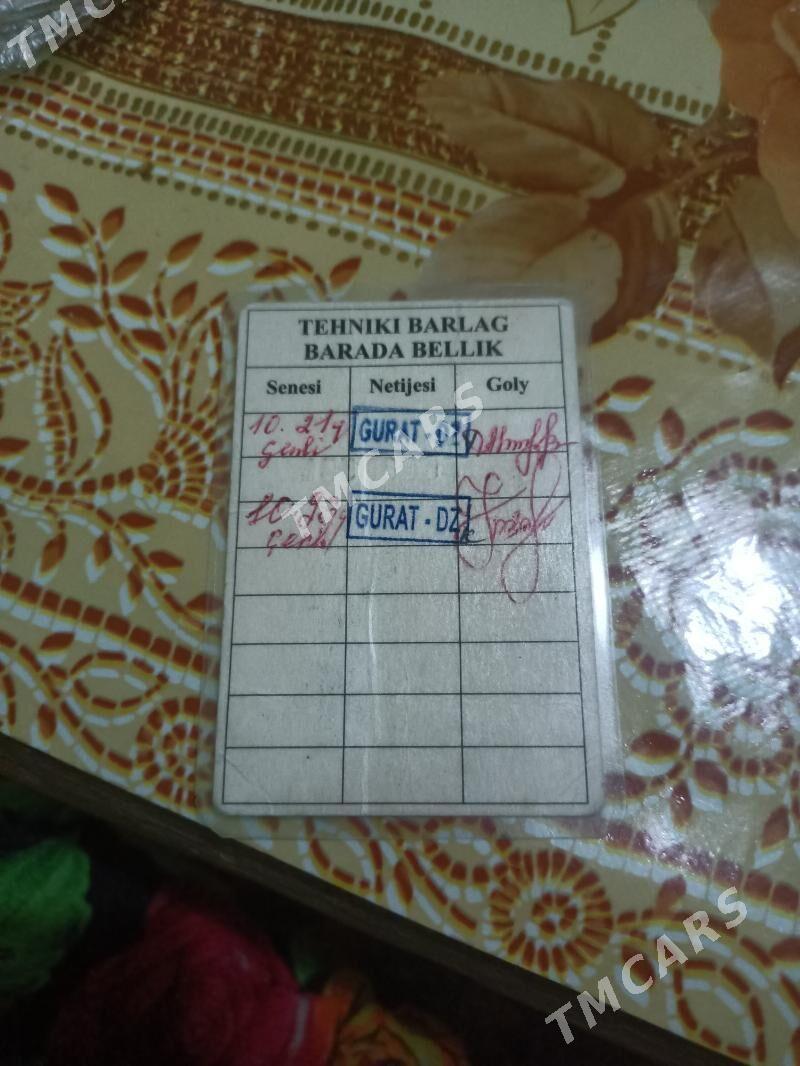 TMCARS
TEHNIKI BARLAG
BARADA BELLIK
Senesi Netijesi Goly
10. 21ý GURAT - DZ
çenli
TMCARS
10. GURAT - DZ
çenli
TMCARS